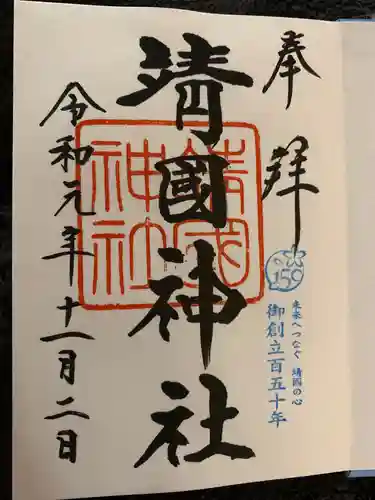 奉拝
靖國神社
靖國神社
150
未来へつなぐ 靖国の心
御創立百五十年
令和元年十一月二日